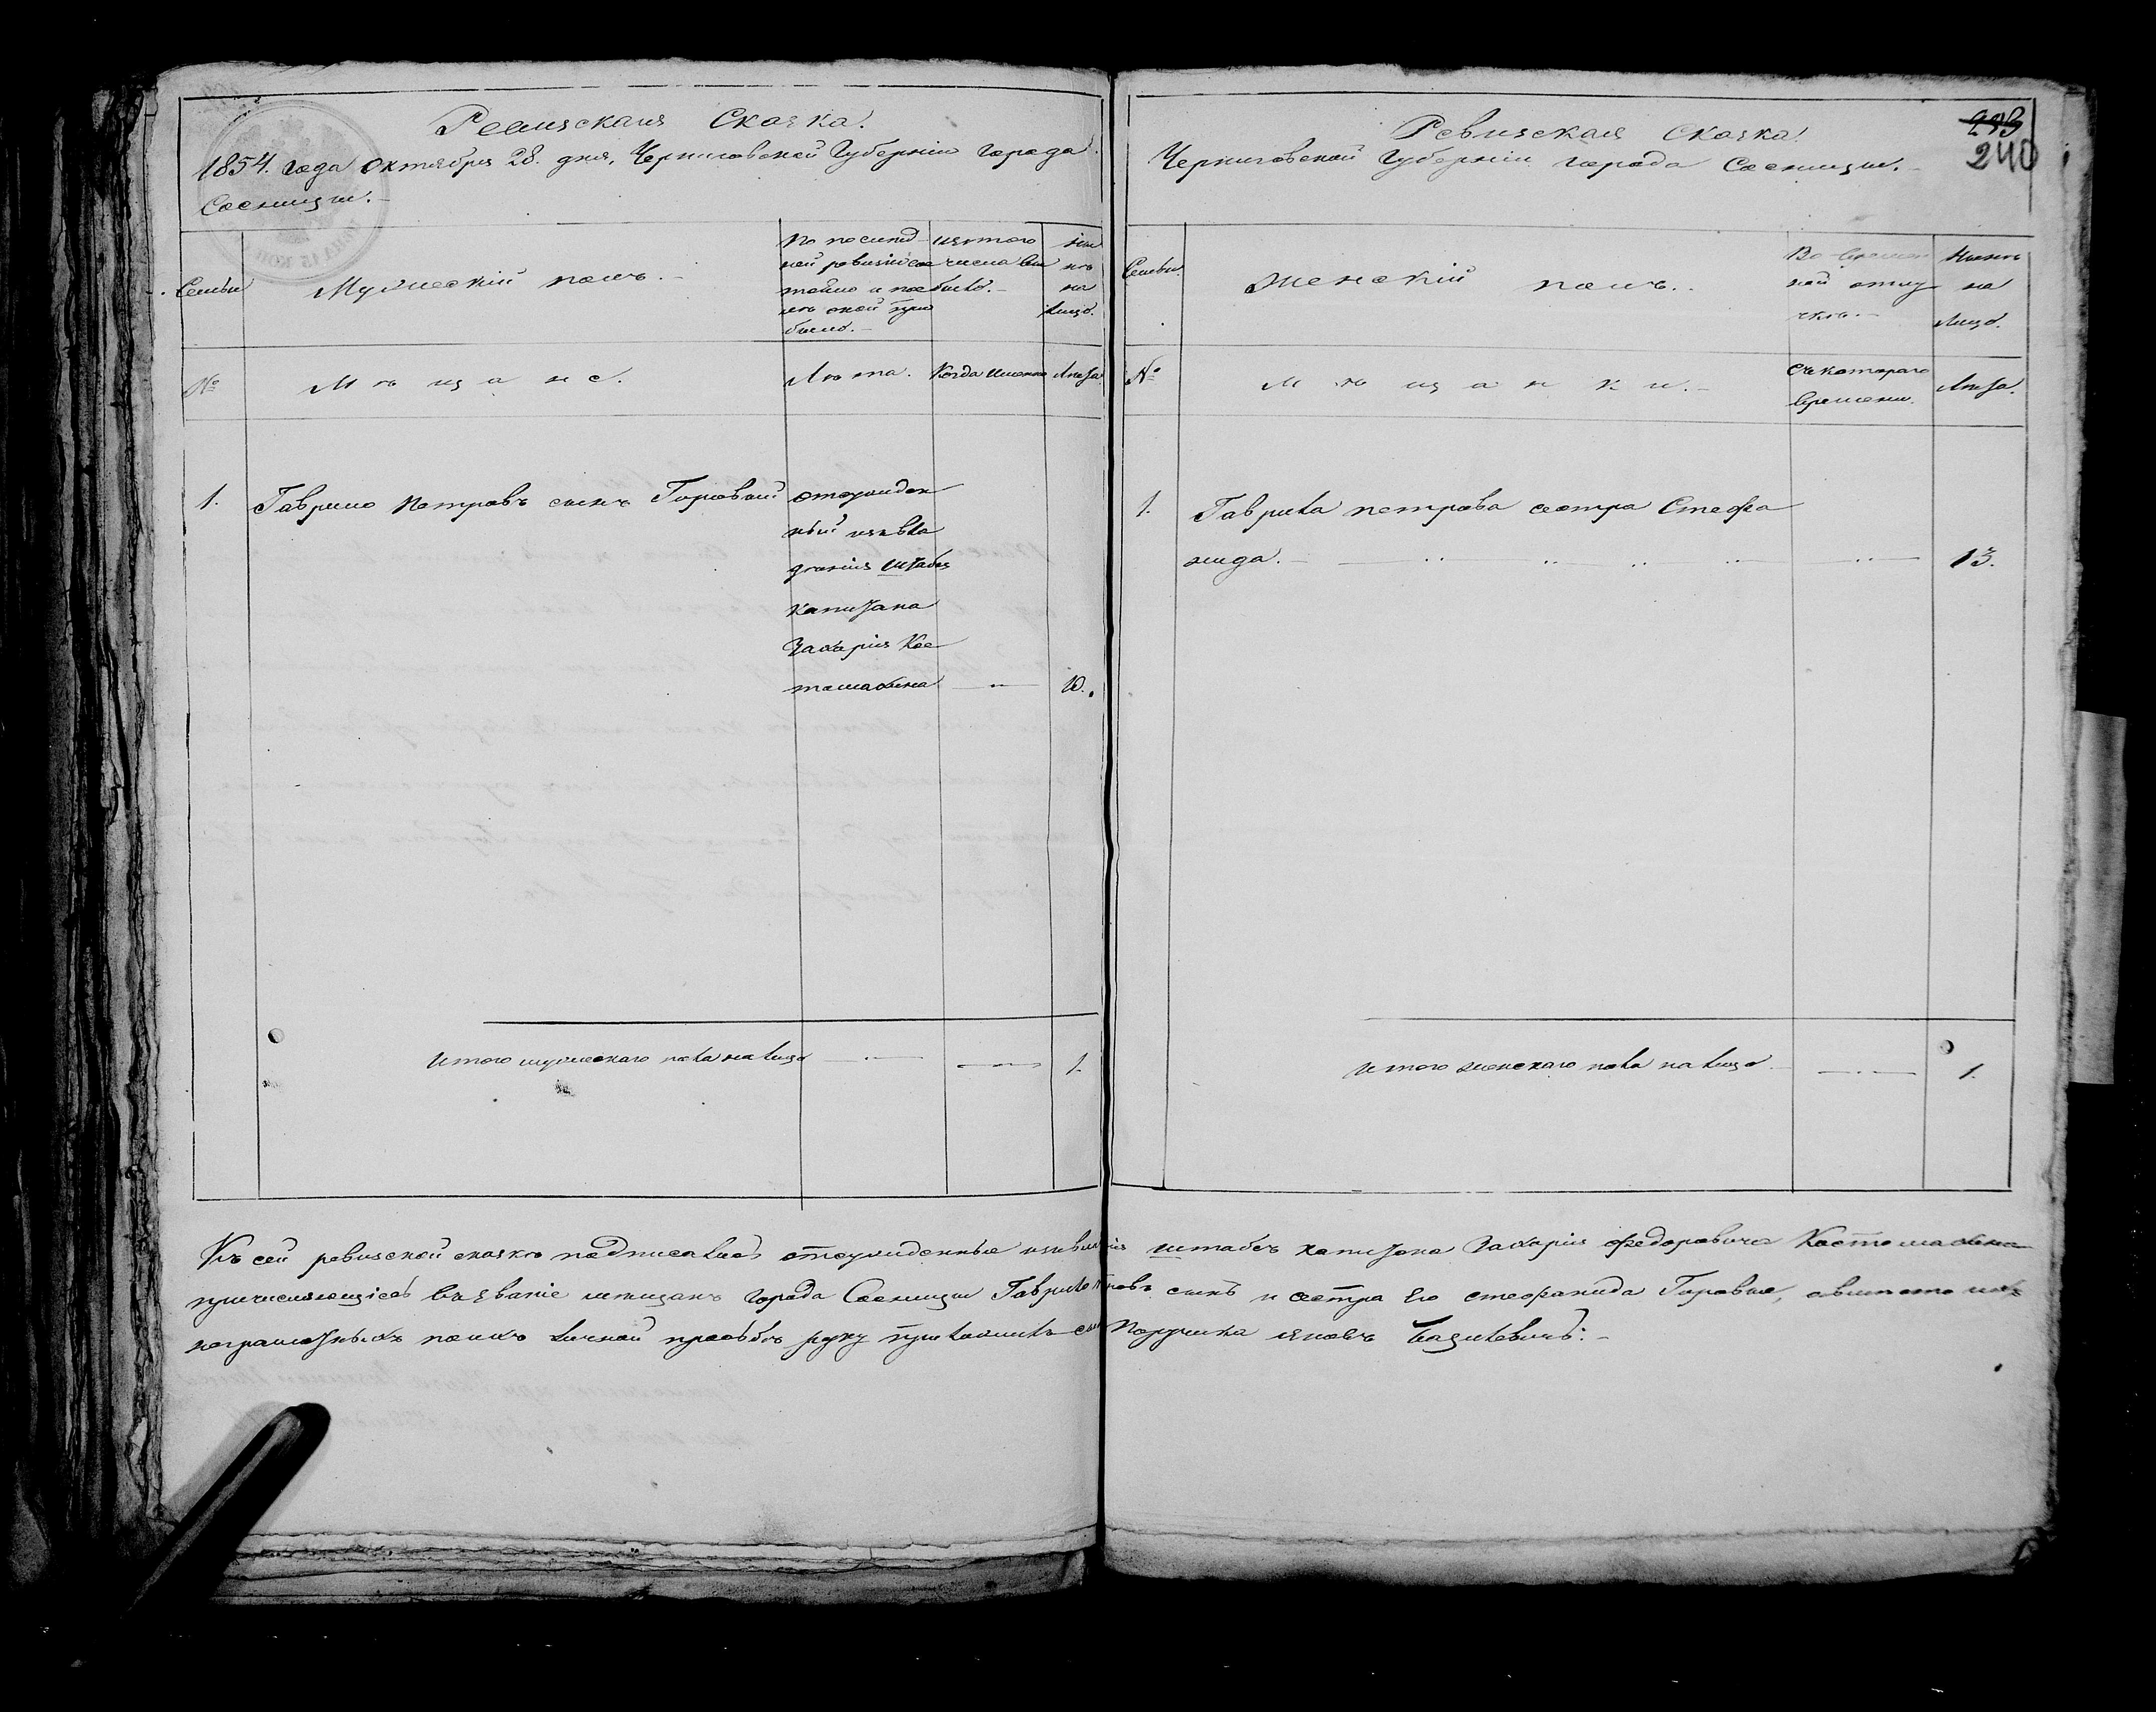 Ревизская Сказка.
1854. года октября 28. дня, Черниговской Губернии города
Сосницы.
Семьи
Мужеский полъ.
По послед
ней ревизіи сос
тояло и пос
лѣ оной при
было.
изъ того
числа вы
было.
ны
нѣ
на
лицо.
№
Мѣщане.
Лѣта.
Когда именно
Лѣта
1.
Гаврило Петровъ сынъ Гировый
отсужден
ный изъ вла
дѣнія штабсъ
капитана
Захарія Кос
томахина
10.
Итого мужескаго пола на лицо
1.
Ревизская Сказка
Черниговской Губерніи города Сосницы.
239
240
Семьи.
Женскій полъ.
Во времен
ной отлу
чкѣ.
Нынѣ
на
лицо.
№
Мѣщанки.
Съ котораго
времени.
Лѣта.
1.
Гаврила Петрова сестра Стефа
нида.
13.
Итого женскаго пола на лицо
1.
Къ сей ревизской сказкѣ подписались отсужденные изъ владѣнія штабсъ капитана Захарія Федоровича Костомахина
причисляющіесь въ званіе мѣщанъ города Сосницы Гаврило Петровъ сынъ и сестра его Стефанида Гировые, а вмѣсто ихъ
неграмотныхъ по ихъ личной прозьбѣ руку приложилъ сынъ Поручика Яковъ Базилевичъ.